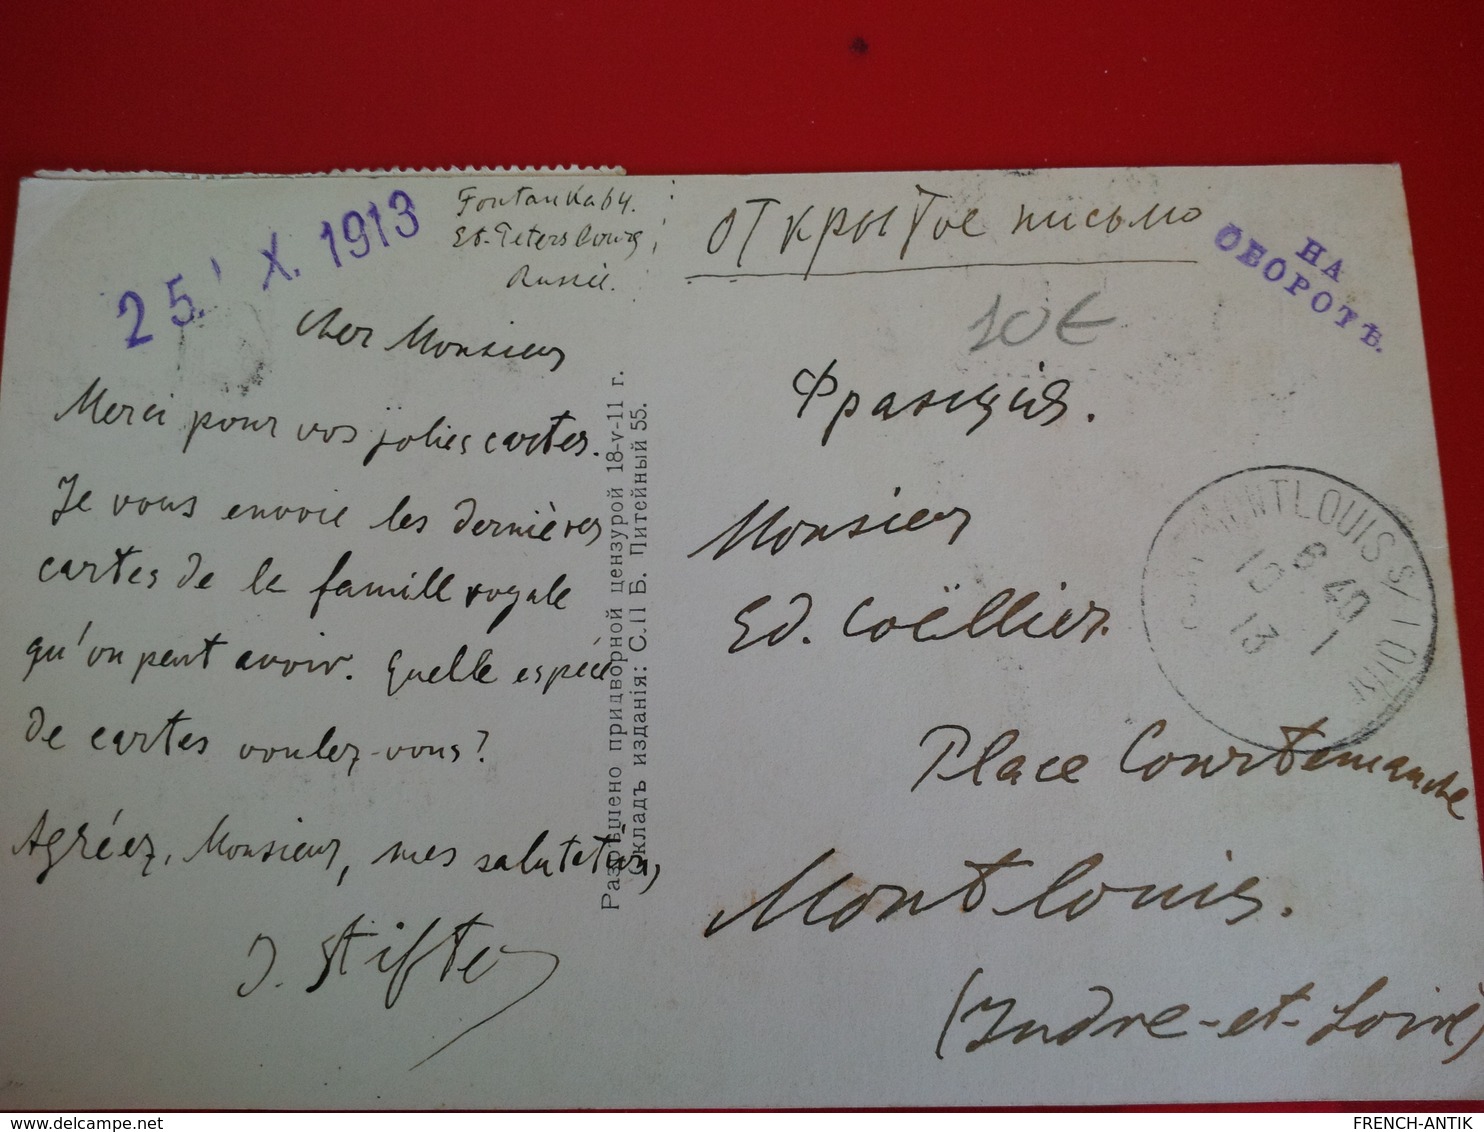 25.' X. 1913
Fontanka 64.
St-Petersbourg
Russie.
Cher Monsieur
Merci pour vos jolies cartes.
Je vous envoie les dernières
cartes de la famille royale
qu'on peut avoir. Quelle espèce
de cartes voulez-vous?
Agréez, Monsieur, mes salutations,
J. Stifter
Разрѣшено придворной цензурой 18-v-11 г.
Складъ изданія: С.П Б. Литейный 55.
Открытое письмо
НА
ОБОРОТѢ.
10€
Франція.
Monsieur
Ed. Coëllier.
Place Courtemanche
Montlouis.
(Indre-et-Loire)
MONTLOUIS S/ LOIRE
6 40
12 - 1
13
FRENCH-ANTIK